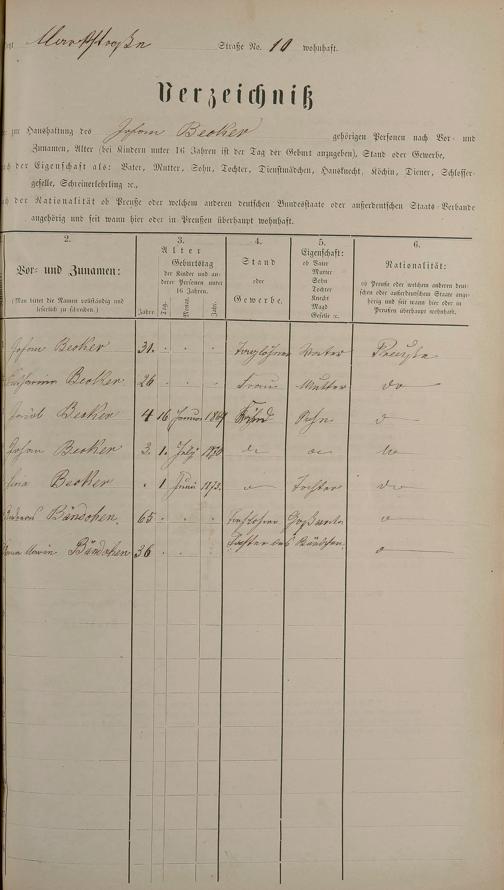 Marktstraße Straße No. 10 wohnhaft.
Verzeichniß
zur Haushaltung des Johann Becker gehörigen Personen nach Vor- und
Zunamen, Alter (bei Kindern unter 16 Jahren ist der Tag der Geburt anzugeben), Stand oder Gewerbe,
nach der Eigenschaft als: Vater, Mutter, Sohn, Tochter, Dienstmädchen, Hausknecht, Köchin, Diener, Schlosser-
geselle, Schreinerlehrling ꝛc.,
nach der Nationalität ob Preuße oder welchem anderen deutschen Bundesstaate oder außerdeutschen Staats-Verbande
angehörig und seit wann hier oder in Preußen überhaupt wohnhaft.
2. 3. 4. 5. 6.
Vor- und Zunamen:
(Man bittet die Namen vollständig und
leserlich zu schreiben.)
Alter
Geburtstag
der Kinder und an-
derer Personen unter
16 Jahren.
Jahre Tag. Monat. Jahr.
Stand
oder
Gewerbe.
Eigenschaft:
ob Vater
Mutter
Sohn
Tochter
Knecht
Magd
Geselle ꝛc.
Nationalität:
ob Preuße oder welchem anderen deut-
schen oder außerdeutschen Staate ange-
hörig und seit wann hier oder in
Preußen überhaupt wohnhaft.
Johann Becker 31. Taglöhner Vater Preuße
Catharina Becker 26 Frau Mutter do
Jacob Becker 4 16 Januar 1869 Kind Sohn d
Johann Becker 2. 1. July do do do
Becker 1 Juni 1873. Tochter do
Bändchen. 65 Großvater
Maria Bändchen 36 Tochter des Bändchen.